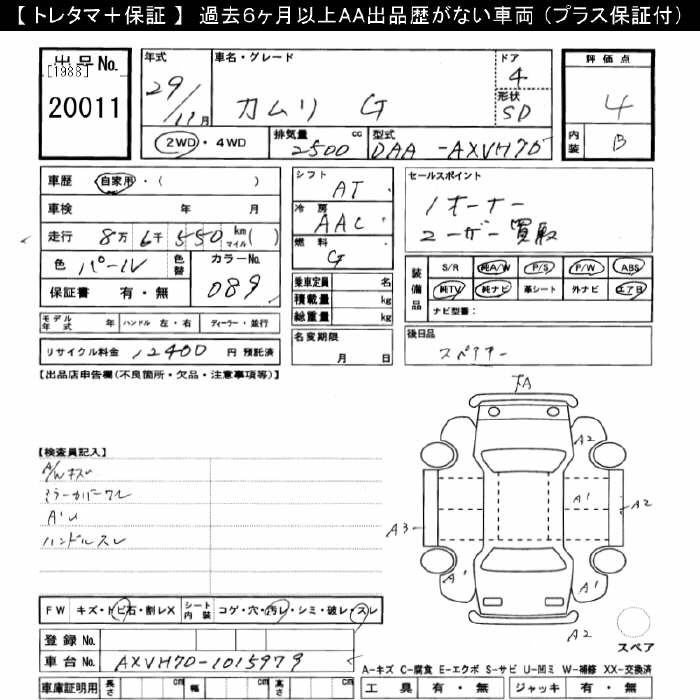 【 トレタマ＋保証 】 過去6ヶ月以上AA出品歴がない車両（プラス保証付）
出品No.
[1988]
20011
年式
29/11月
車名・グレード
カムリ G
ドア
4
形状
SD
評価点
4
内装
B
2WD・4WD
排気量
2500cc
型式
DAA -AXVH70
車歴 自家用・( )
車検 年 月
走行 8万6千550km マイル( )
色 パール
色替
カラーNo.
089
保証書 有・無
モデル年式 年 ハンドル 左・右 ディーラー・並行
リサイクル料金 12400 円 預託済
シフト
AT
冷房
AAC
燃料
G
乗車定員 名
積載量 kg
総重量 kg
名変期限
月 日
セールスポイント
1オーナー
ユーザー買取
装備品
S/R 純A/W P/S P/W ABS
純TV 純ナビ 革シート 外ナビ エアB
ナビ型番：
後日品
スペアキー
【出品店申告欄(不良箇所・欠品・注意事項等)】
【検査員記入】
A/Wキズ
ミラーカバーワレ
A・U
ハンドルスレ
FW キズ・トビ石・割レX
シート内装 コゲ・穴・汚レ・シミ・破レ・スレ
登録No.
車台No. AXVH70-1015979
車庫証明用 長さ cm 幅 cm 高さ cm
A
A2
A1
A2
A3
A1
A1
A2
スペア
A-キズ C-腐食 E-エクボ S-サビ U-凹ミ W-補修 XX-交換済
工具 有・無 ジャッキ 有・無